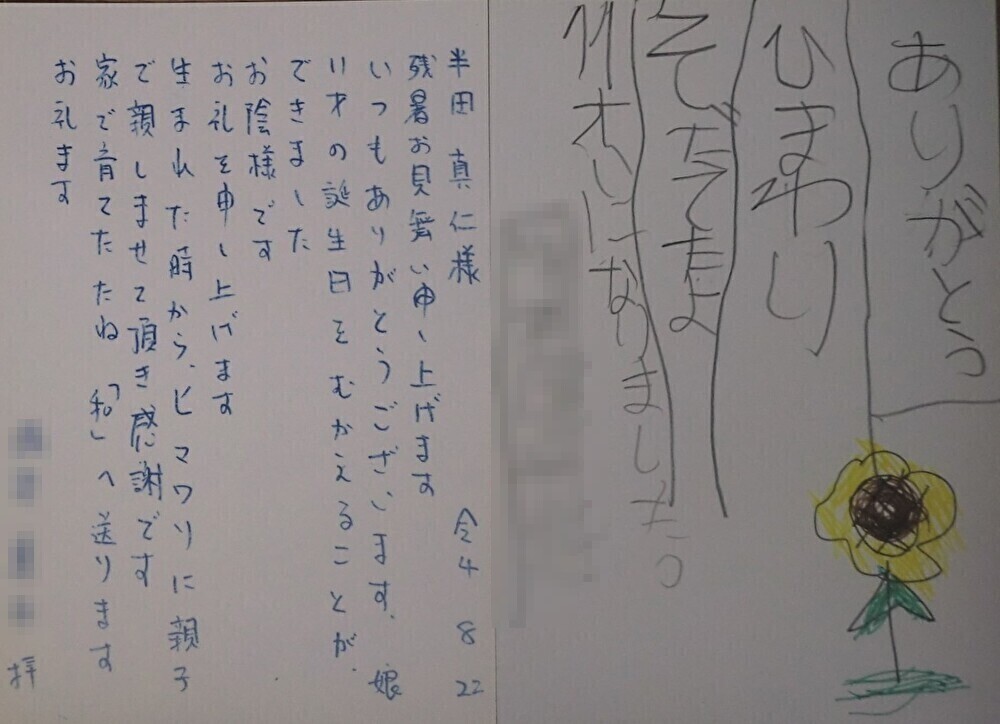 半田 真仁様 令4 8 22
残暑お見舞い申し上げます
いつもありがとうございます。娘
11才の誕生日をむかえることが
できました
お陰様です
お礼を申し上げます
生まれた時から、ヒマワリに親子
で親しませて頂き感謝です
家で育てたたね「和」へ送ります
お礼ます
拝
ありがとう
ひまわり
そだてたよ
11才いになりました。